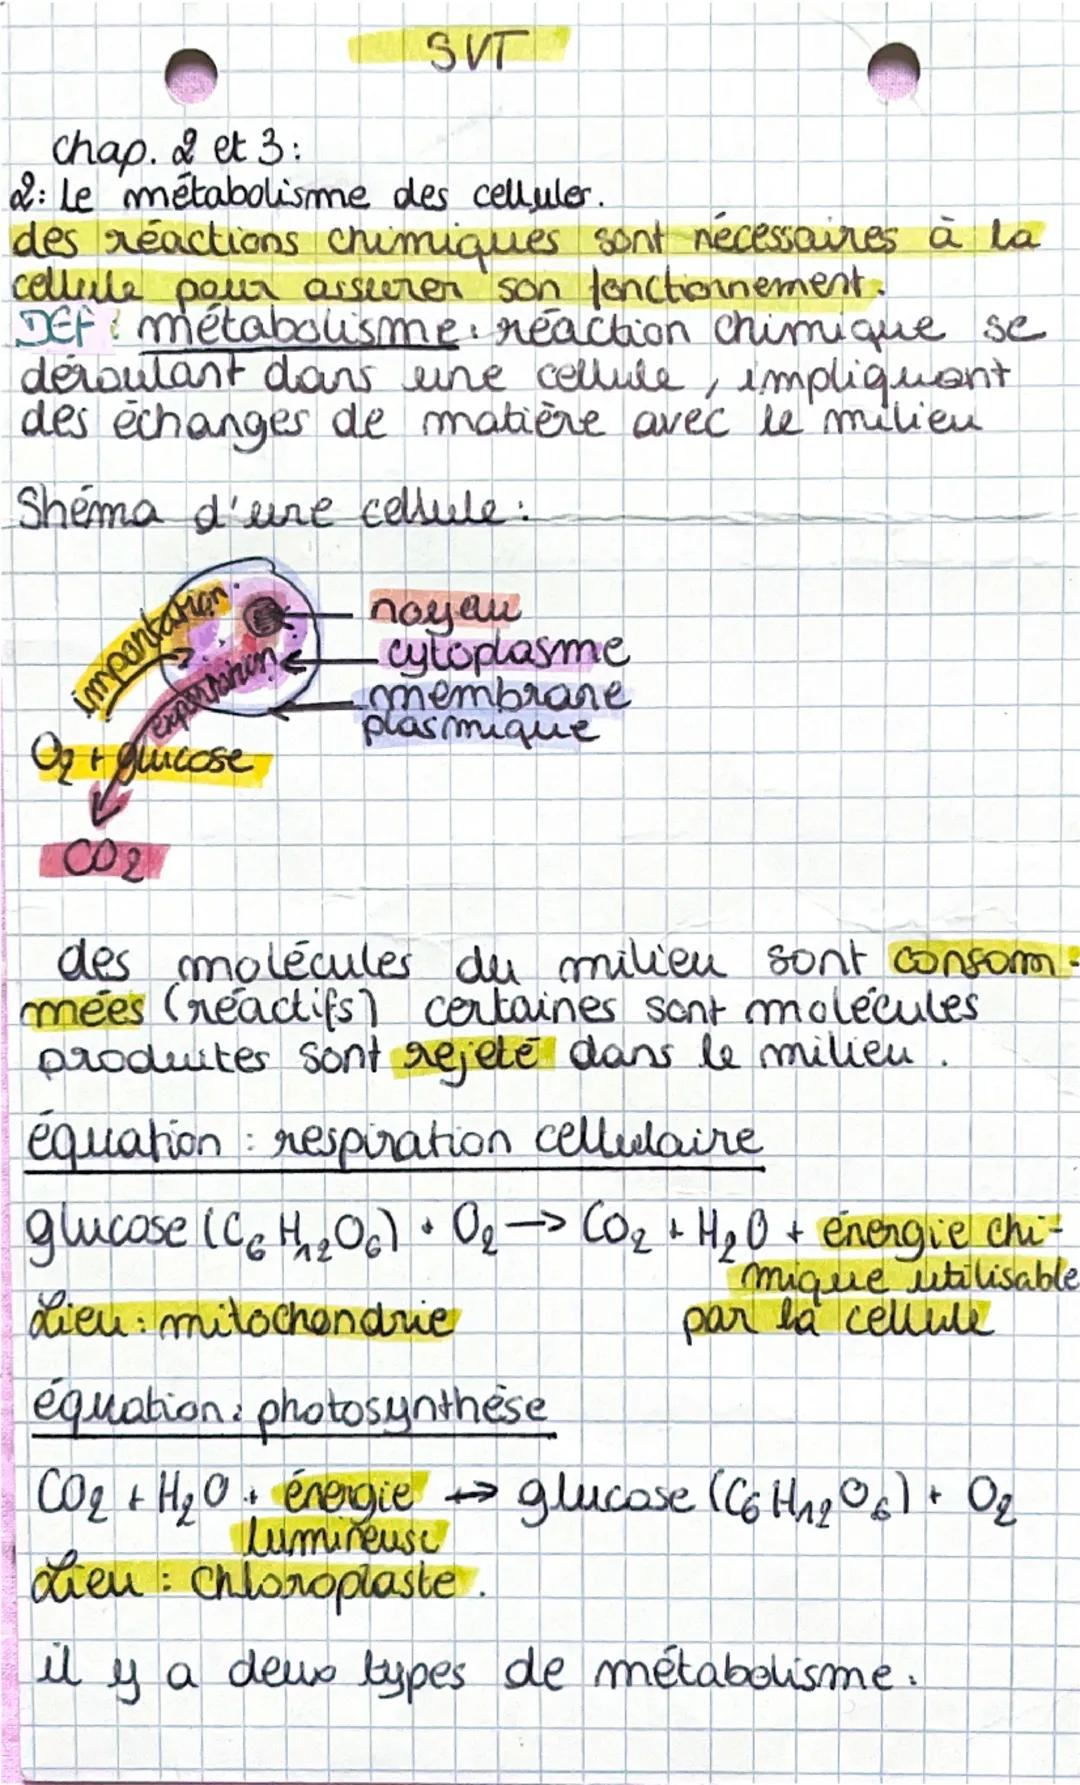 SVT
chap. 2 et 3:
2: Le métabolisme des cellules.
des réactions chimiques sont nécessaires à la
cellule pour assurer son fonctionnement.
DEF : métabolisme: réaction chimique se
déroulant dans une cellule, impliquant
des échanges de matière avec le milieu
Shéma d'une cellule:
importation
exportation
noyau
cytoplasme
membrane
plasmique
O2 + glucose
CO2
des molécules du milieu sont consom-
mées (réactifs) certaines sont molécules
produites sont rejeté dans le milieu.
équation : respiration cellulaire
glucose (C6 H12 O6) + O2 → CO2 + H2O + énergie chi-
mique utilisable
Lieu : mitochondrie par la cellule
équation: photosynthèse
CO2 + H2O + énergie → glucose (C6 H12 O6) + O2
lumineuse
Lieu : chloroplaste.
il y a deux types de métabolisme: